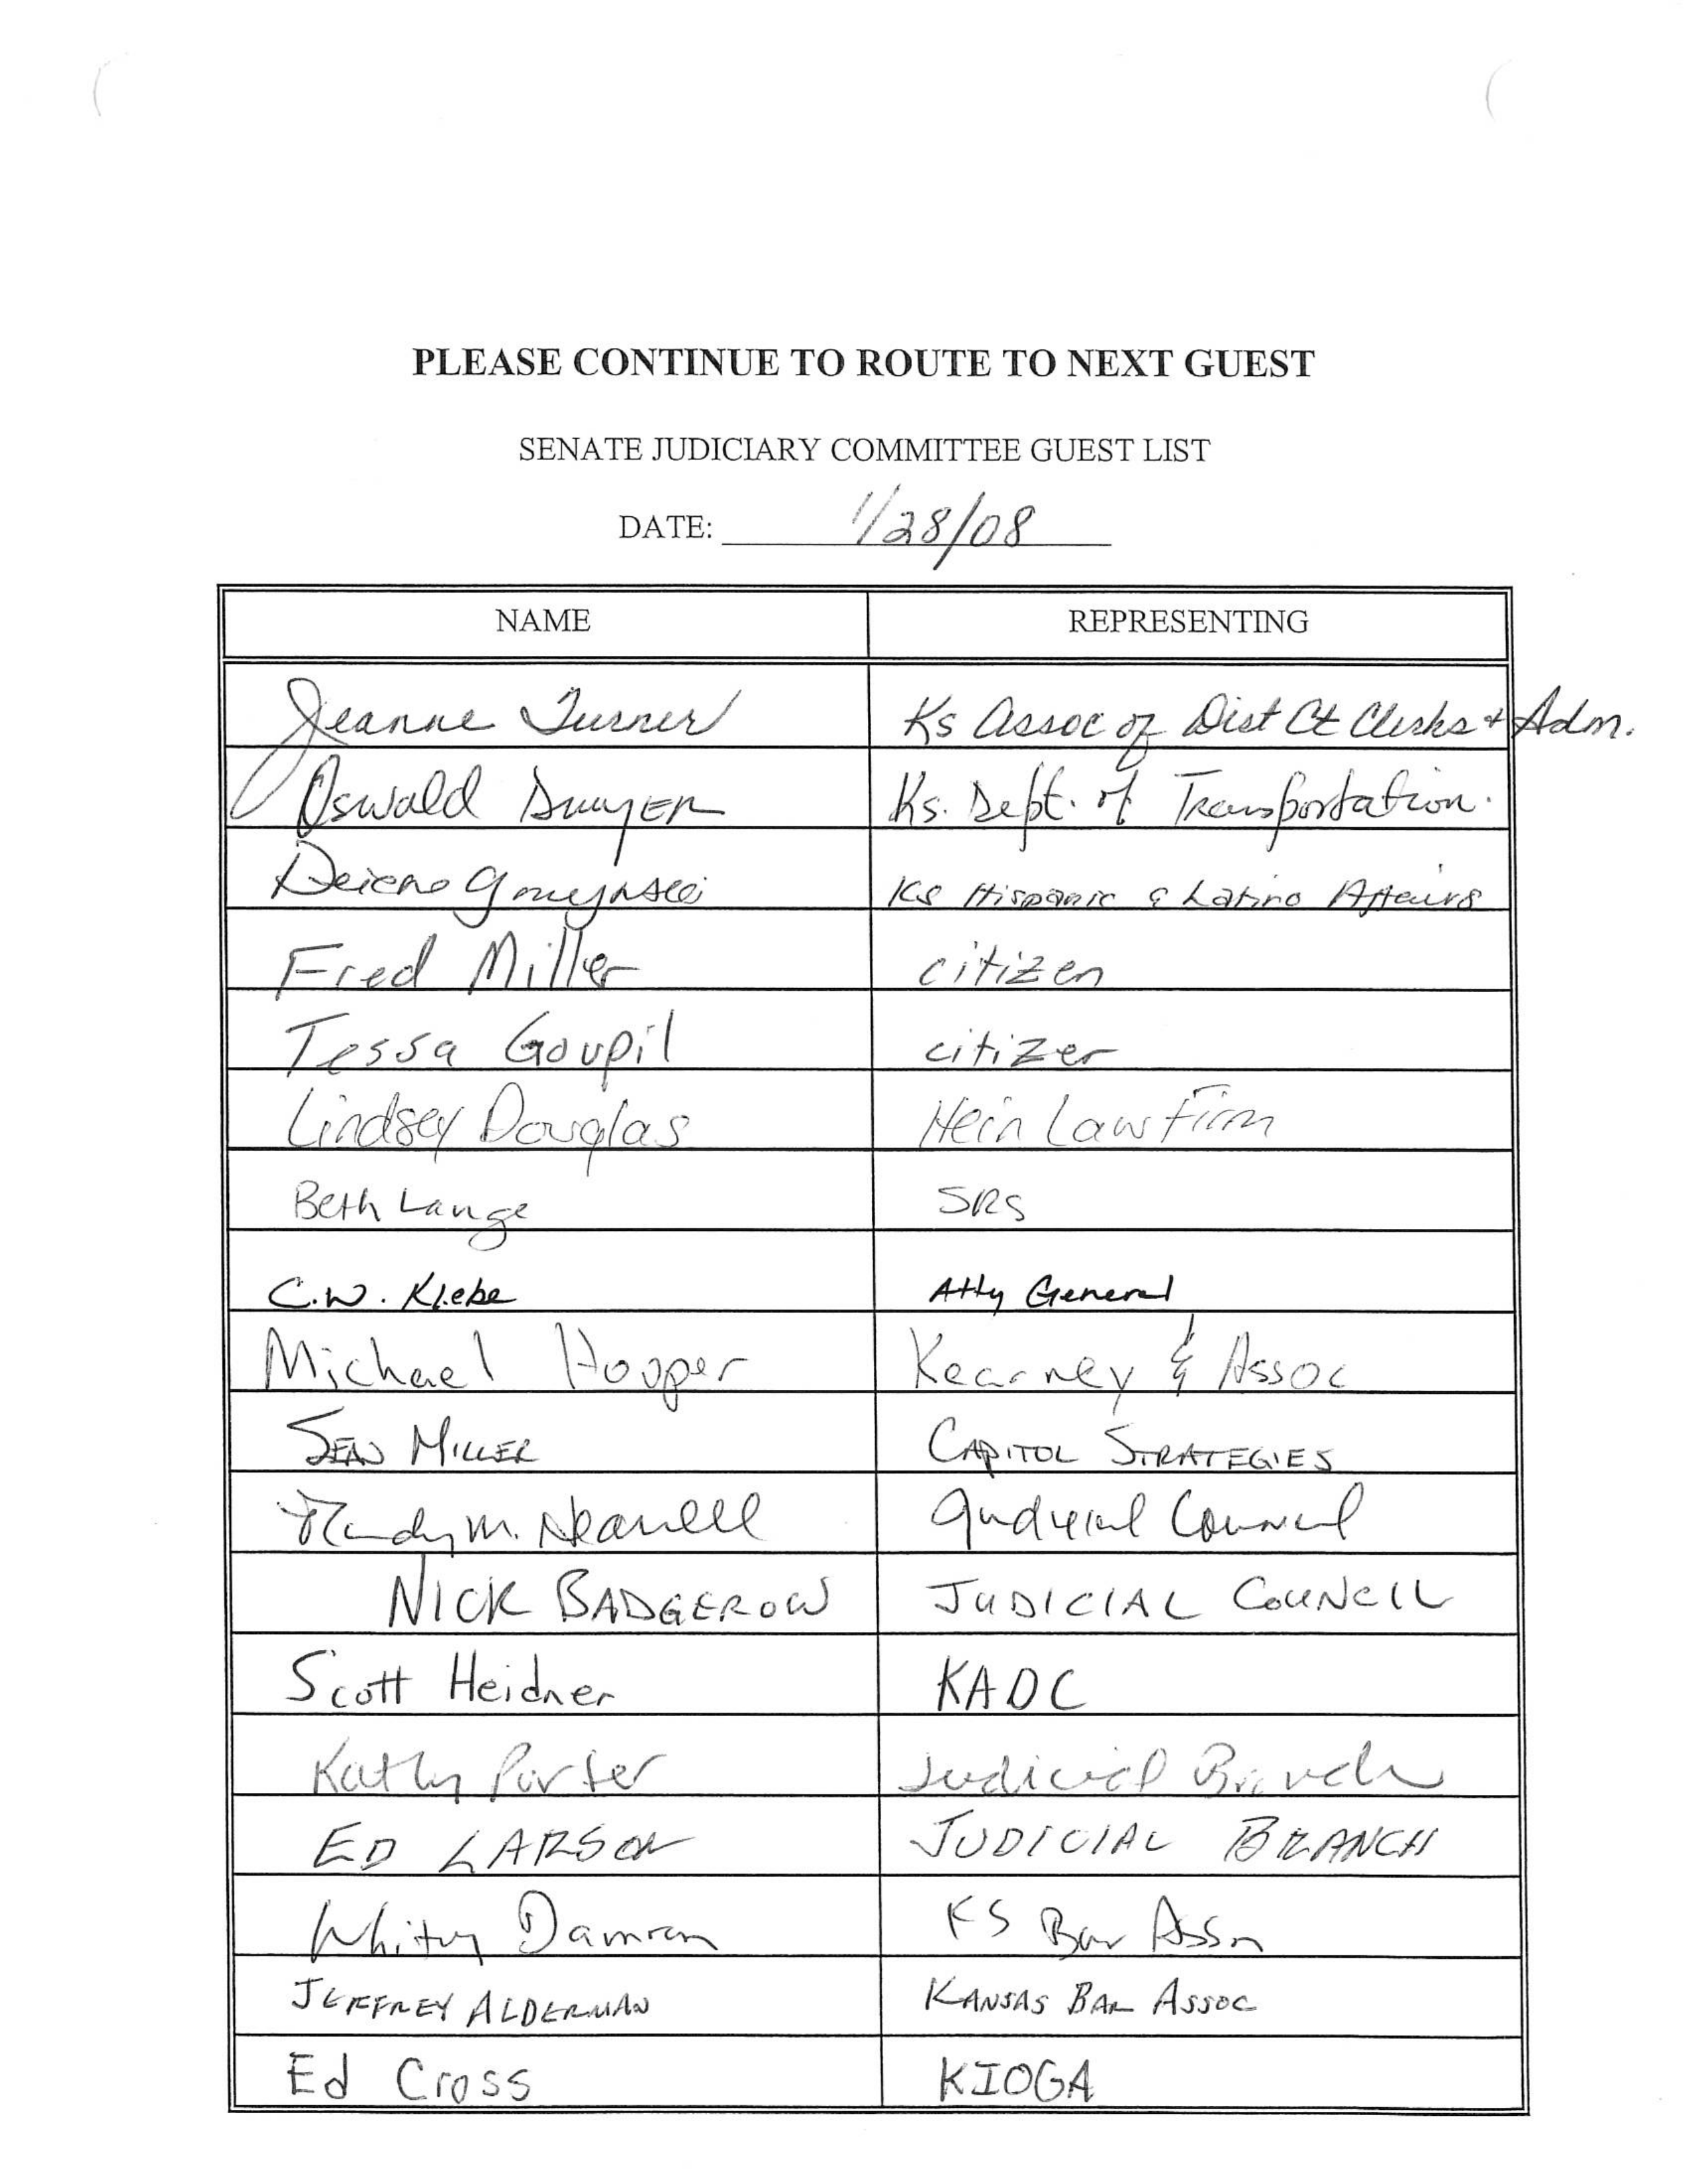 PLEASE CONTINUE TO ROUTE TO NEXT GUEST
SENATE JUDICIARY COMMITTEE GUEST LIST
DATE: 1/28/08
NAME REPRESENTING
Jeanne Turner Ks Assoc of Dist Ct Clerks + Adm.
Oswald Dwyer Ks. Dept. of Transportation.
KS Hispanic & Latino Affairs
Fred Miller citizen
Tessa Goupil citizen
Lindsey Douglas Hein Law Firm
Beth Lange SRS
C.W. Klebe Atty General
Michael Hooper Kearney & Assoc
SEAN MILLER CAPITOL STRATEGIES
Randy M. Hearrell Judicial Council
NICK BADGEROW JUDICIAL COUNCIL
Scott Heidner KADC
Kathy Porter Judicial Branch
ED LARSON JUDICIAL BRANCH
Whitney Damron KS Bar Assn
JEFFREY ALDERMAN KANSAS BAR ASSOC
Ed Cross KIOGA